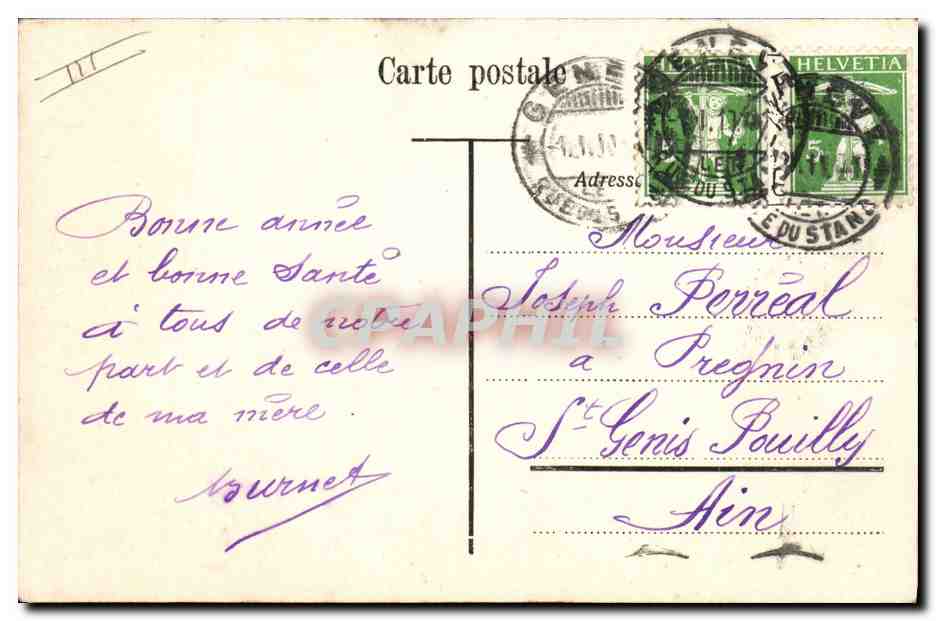 Carte postale
HELVETIA
HELVETIA
Adresse
RUE DU STAND
Bonne année
et bonne Santé
à tous de notre
part et de celle
de ma mère
Burnet
Monsieur
Joseph Perréal
a Pregnin
St Genis Pouilly
Ain
CPAPHIL